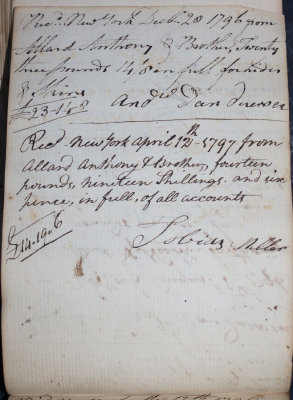 Recd. New York Decbr. 28 1796 from
Allard Anthony & Brother, Twenty
three pounds 14/8 in full for hides
& Skins
£23-14-8 And
Recd New York april 12th 1797 from
Allard Anthony & Brother, fourteen
pounds, nineteen Shillings and six
pence, in full, of all accounts
£14-19-6
Tobias Miller